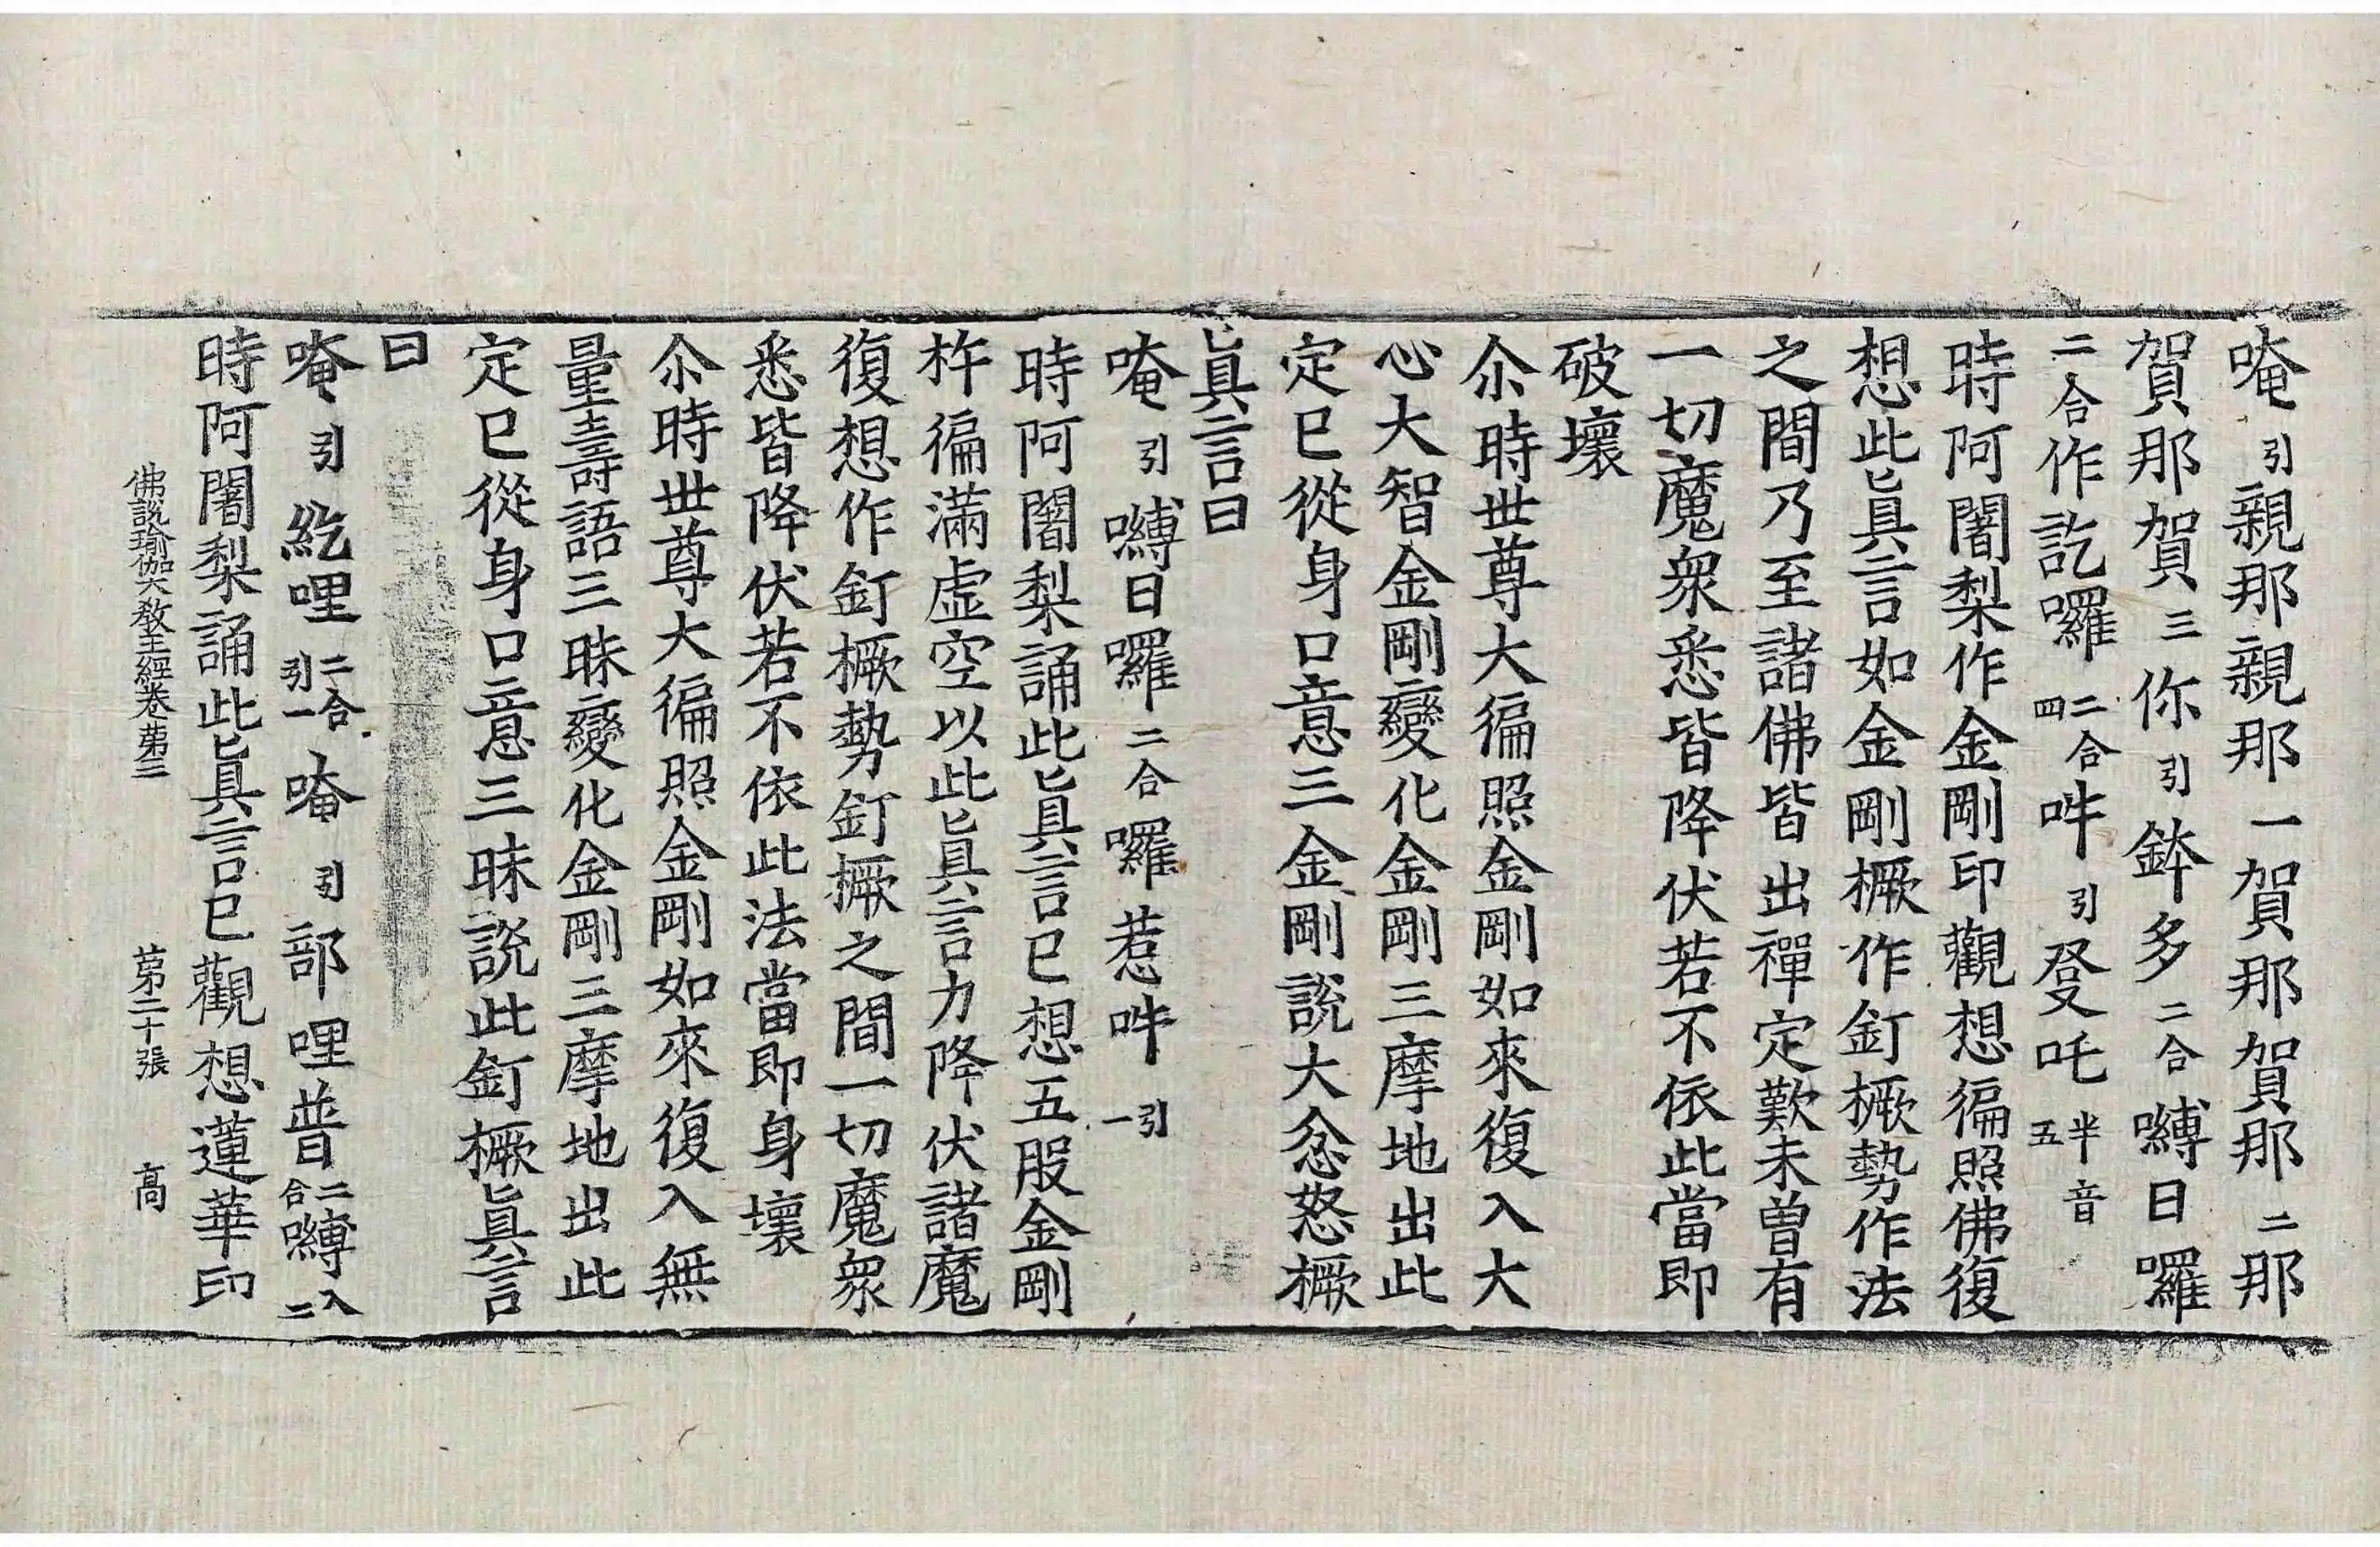 唵引親那親那一賀那賀那二那
賀那賀三你引鉢多二合嚩日囉
二合作訖囉二合四吽引癹吒半音五
時阿闍梨作金剛印觀想徧照佛復
想此眞言如金剛橛作釘橛勢作法
之間乃至諸佛皆出禪定歎未曾有
一切魔衆悉皆降伏若不依此當即
破壞
尒時世尊大徧照金剛如來復入大
心大智金剛變化金剛三摩地出此
定已從身口意三金剛說大忿怒橛
眞言曰
唵引嚩日囉二合囉惹吽引一
時阿闍梨誦此眞言已想五股金剛
杵徧滿虛空以此眞言力降伏諸魔
復想作釘橛勢釘撅之間一切魔衆
悉皆降伏若不依此法當即身壞
尒時世尊大徧照金剛如來復入無
量壽語三昧變化金剛三摩地出此
定已從身口意三昧說此釘橛眞言
曰
唵引紇哩二合引一唵引部哩普二合嚩入二
時阿闍梨誦此眞言已觀想蓮華印
佛說瑜伽大教王經卷第三 第二十張 高